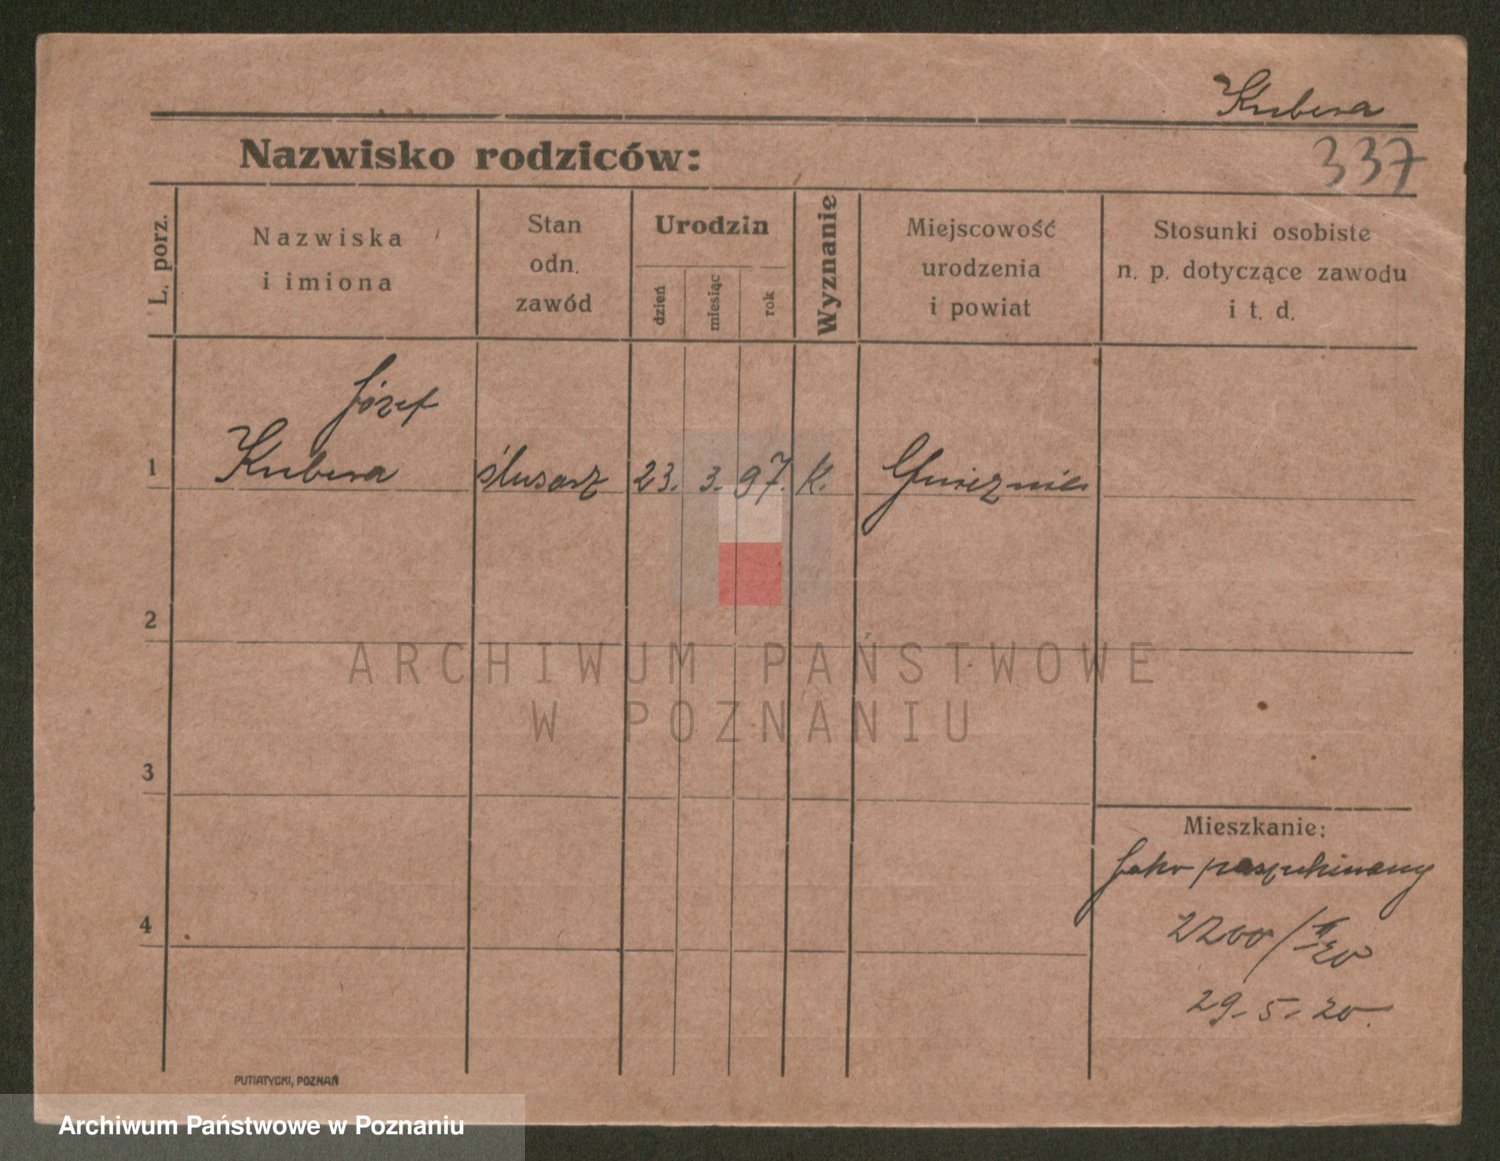 Kubera
337
Nazwisko rodziców:
L. porz.
Nazwiska
i imiona
Stan
odn.
zawód
Urodzin
dzień
miesiąc
rok
Wyznanie
Miejscowość
urodzenia
i powiat
Stosunki osobiste
n. p. dotyczące zawodu
i t. d.
Józef
1 Kubera ślusarz 23. 3. 97. k. Gnieznie
2
ARCHIWUM PAŃSTWOWE
W POZNANIU
3
Mieszkanie:
Jako poszukiwany
4
2200/II 20
29-5-20.
PUTIATYCKI, POZNAŃ
Archiwum Państwowe w Poznaniu